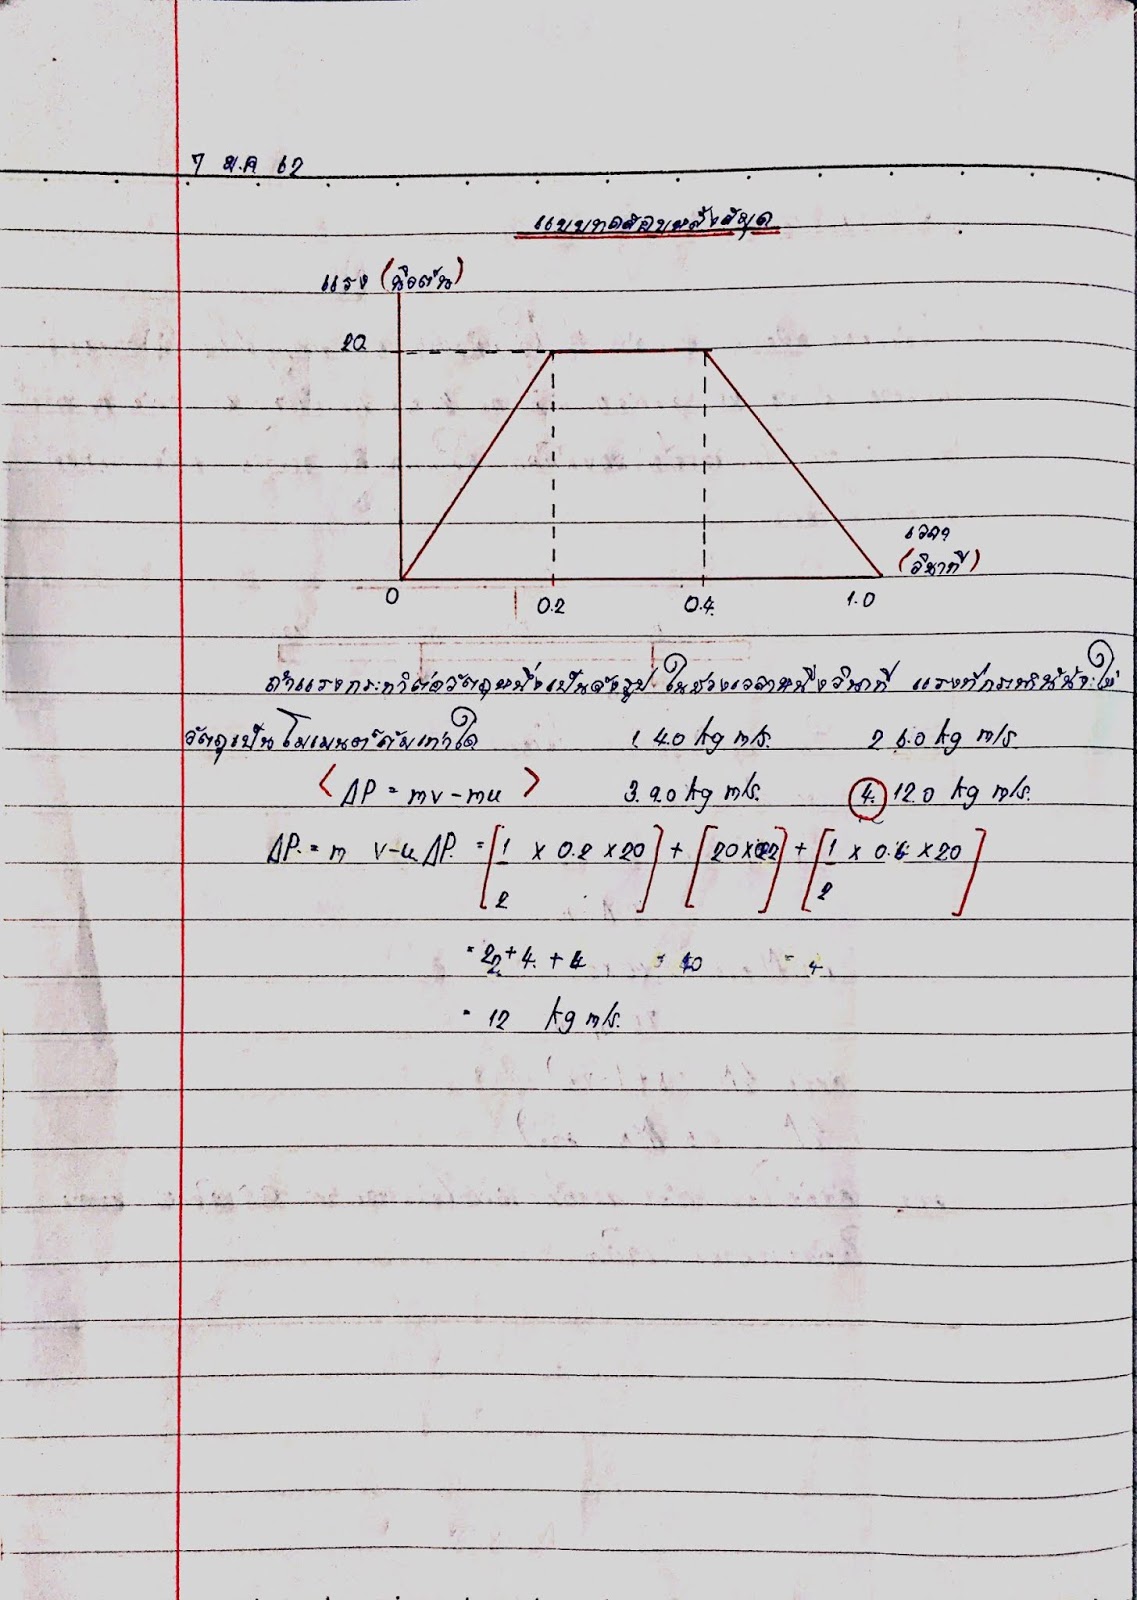 7 ม.ค 62
แบบทดสอบหลังสมุด
แรง (นิวตัน)
20
เวลา
(วินาที)
0 0.2 0.4 1.0
ถ้าแรงกระทำต่อวัตถุหนึ่งเป็นดังรูป ในช่วงเวลาหนึ่งวินาที แรงที่กระทำนั้นจะให้
วัตถุเป็นโมเมนตัมเท่าใด 1. 4.0 kg m/s. 2 6.0 kg m/s.
< ΔP = mv - mu > 3. 9.0 kg m/s. 4. 12.0 kg m/s.
ΔP. = m v-u ΔP. = [1/2 × 0.2 × 20] + [20×0.2] + [1/2 × 0.6 × 20]
= 2 + 4 +
= 12 kg m/s.